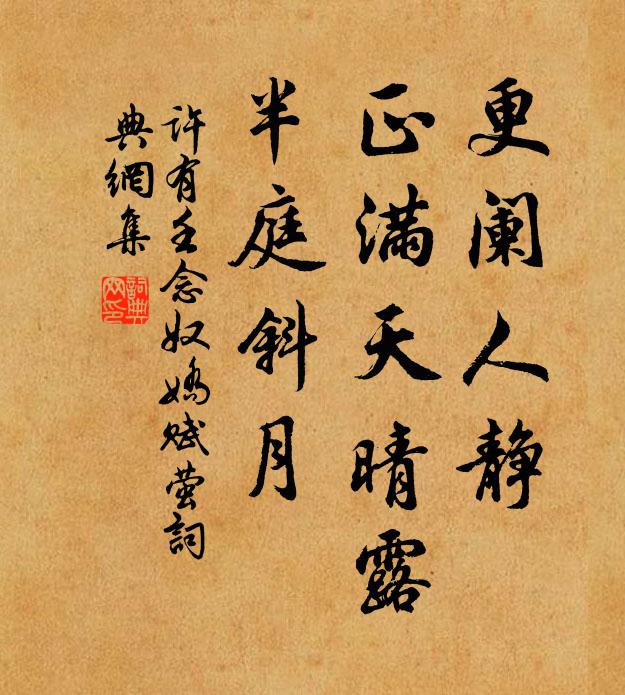 更阑人静
正满天晴露
半庭斜月
许有壬念奴娇赋萤詞
典網集
詞典網印